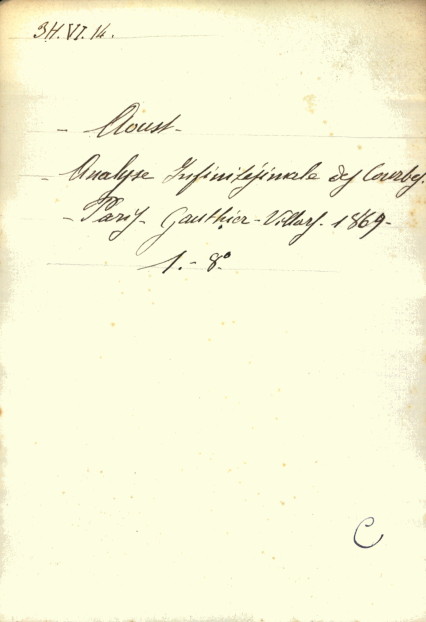 3H.VI.14.
- Aoust -
- Analyse Infinitésimale des Courbes.
- Paris - Gauthier-Villars - 1869 -
1. - 8°
C